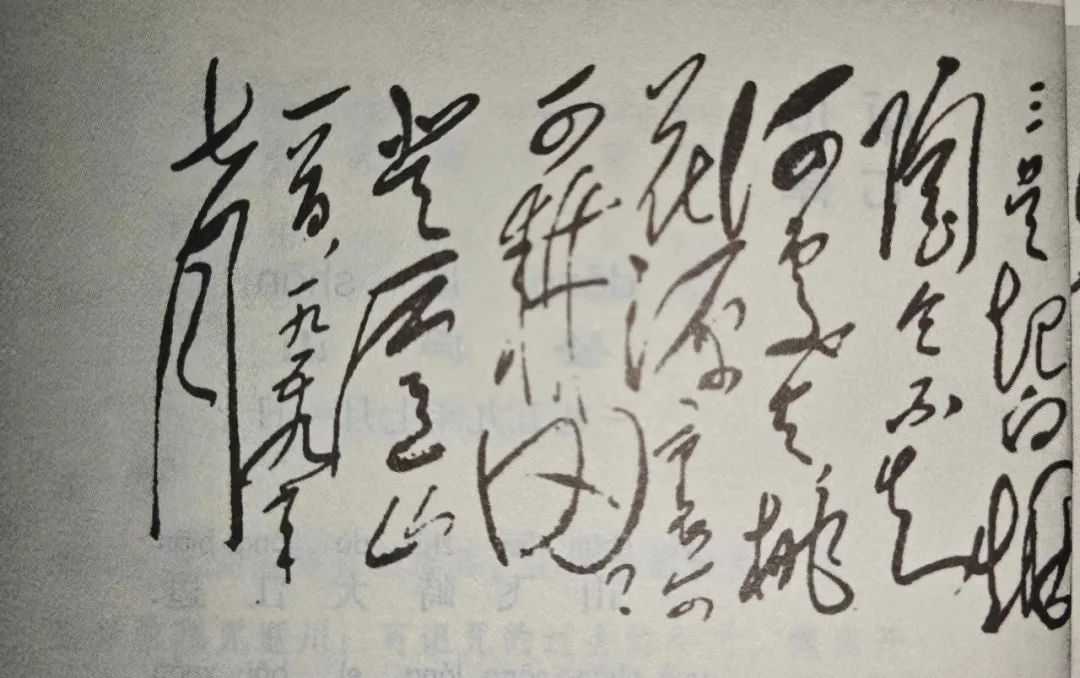 三吴起白烟
陶令不知
何處去，桃
花源裏
可耕田？
登廬山
一首，一九五九年
七月